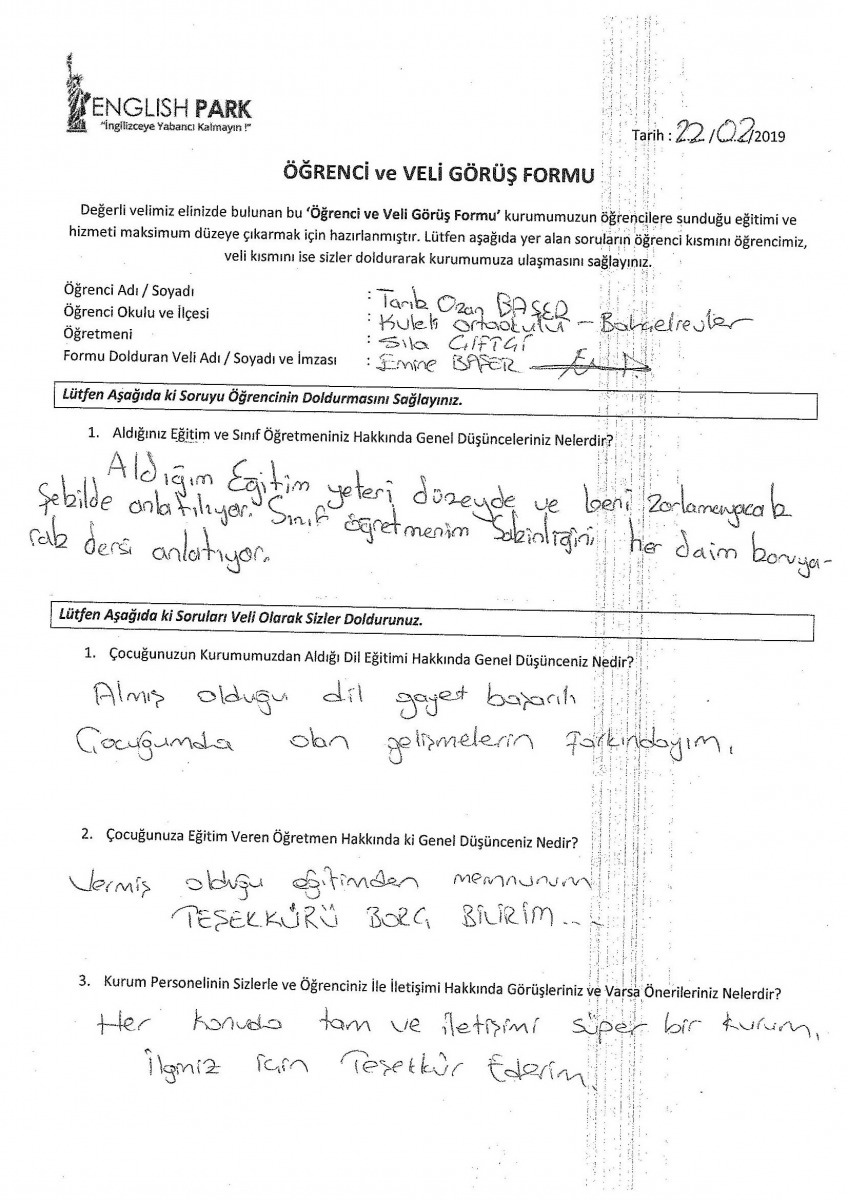 ENGLISH PARK
"İngilizceye Yabancı Kalmayın !"
Tarih : 22/02/2019
ÖĞRENCİ ve VELİ GÖRÜŞ FORMU
Değerli velimiz elinizde bulunan bu 'Öğrenci ve Veli Görüş Formu' kurumumuzun öğrencilere sunduğu eğitimi ve
hizmeti maksimum düzeye çıkarmak için hazırlanmıştır. Lütfen aşağıda yer alan soruların öğrenci kısmını öğrencimiz,
veli kısmını ise sizler doldurarak kurumumuza ulaşmasını sağlayınız.
Öğrenci Adı / Soyadı : Tarık Ozan BAŞER
Öğrenci Okulu ve İlçesi : Kuleli Ortaokulu – Bahçelievler
Öğretmeni : Sıla ÇİFTÇİ
Formu Dolduran Veli Adı / Soyadı ve İmzası : Emine BAŞER
Lütfen Aşağıda ki Soruyu Öğrencinin Doldurmasını Sağlayınız.
1. Aldığınız Eğitim ve Sınıf Öğretmeniniz Hakkında Genel Düşünceleriniz Nelerdir?
Aldığım Eğitim yeteri düzeyde ve beni zorlamayacak
Şekilde anlatılıyor. Sınıf öğretmenim Sakinliğini her daim koruya-
rak dersi anlatıyor.
Lütfen Aşağıda ki Soruları Veli Olarak Sizler Doldurunuz.
1. Çocuğunuzun Kurumumuzdan Aldığı Dil Eğitimi Hakkında Genel Düşünceniz Nedir?
Almış olduğu dil gayet başarılı
Çocuğumda olan gelişmelerin farkındayım.
2. Çocuğunuza Eğitim Veren Öğretmen Hakkında ki Genel Düşünceniz Nedir?
Vermiş olduğu eğitimden memnunum
TEŞEKKÜRÜ BORÇ BİLİRİM...
3. Kurum Personelinin Sizlerle ve Öğrenciniz İle İletişimi Hakkında Görüşleriniz ve Varsa Önerileriniz Nelerdir?
Her konuda tam ve iletişimi süper bir kurum.
İlgniz için Teşekkür Ederim.